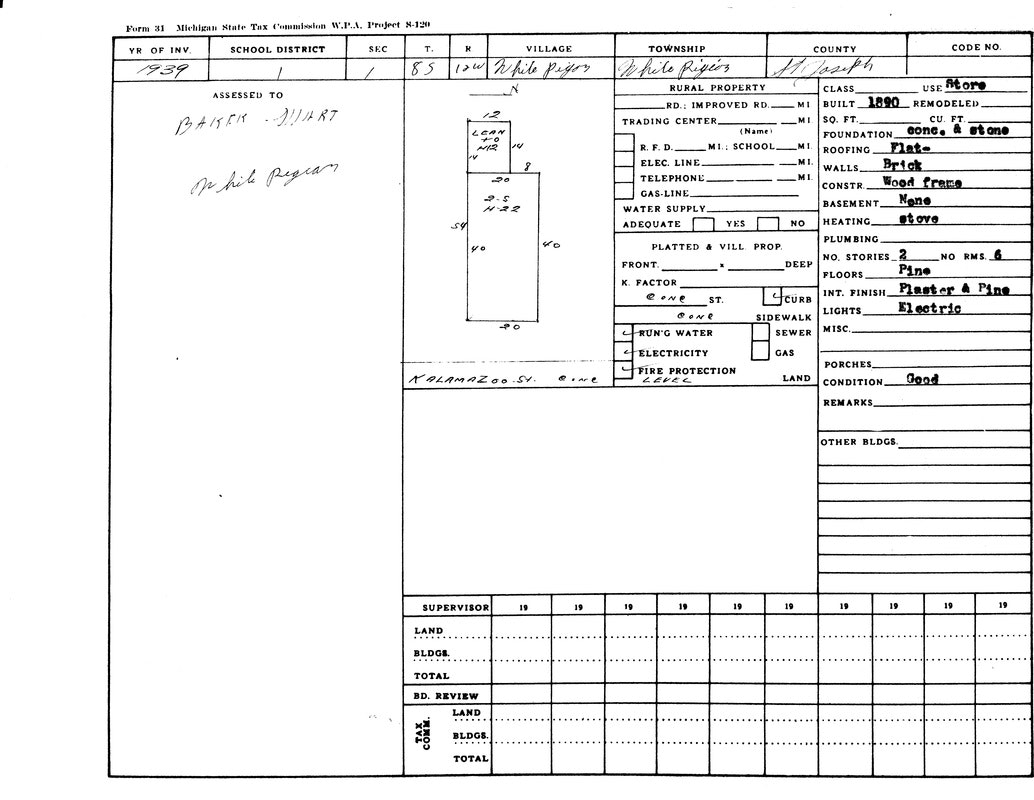 Form 31 Michigan State Tax Commission W.P.A. Project S-120
YR OF INV. SCHOOL DISTRICT SEC T. R VILLAGE TOWNSHIP COUNTY CODE NO.
1939 1 1 8S 12W White Pigeon White Pigeon St. Joseph
ASSESSED TO
BAKER
White Pigeon
N
12
LEAN
TO
H12
14
14
8
20
2-S
H-22
54
40
40
20
KALAMAZOO ST. CONC
RURAL PROPERTY
RD.; IMPROVED RD. MI
TRADING CENTER MI.
(Name)
R. F. D. MI.; SCHOOL MI.
ELEC. LINE MI.
TELEPHONE MI.
GAS-LINE
WATER SUPPLY
ADEQUATE YES NO
PLATTED & VILL. PROP.
FRONT. x DEEP
K. FACTOR
CONC ST. CURB
CONC SIDEWALK
RUN'G WATER SEWER
ELECTRICITY GAS
FIRE PROTECTION
LEVEL LAND
CLASS USE Store
BUILT 1890 REMODELED
SQ. FT. CU. FT.
FOUNDATION conc. & stone
ROOFING Flat-
WALLS Brick
CONSTR. Wood frame
BASEMENT None
HEATING stove
PLUMBING
NO. STORIES 2 NO RMS. 6
FLOORS Pine
INT. FINISH Plaster & Pine
LIGHTS Electric
MISC.
PORCHES
CONDITION Good
REMARKS
OTHER BLDGS.
SUPERVISOR 19 19 19 19 19 19 19 19 19 19
LAND
BLDGS.
TOTAL
BD. REVIEW
TAX COMM.
LAND
BLDGS.
TOTAL